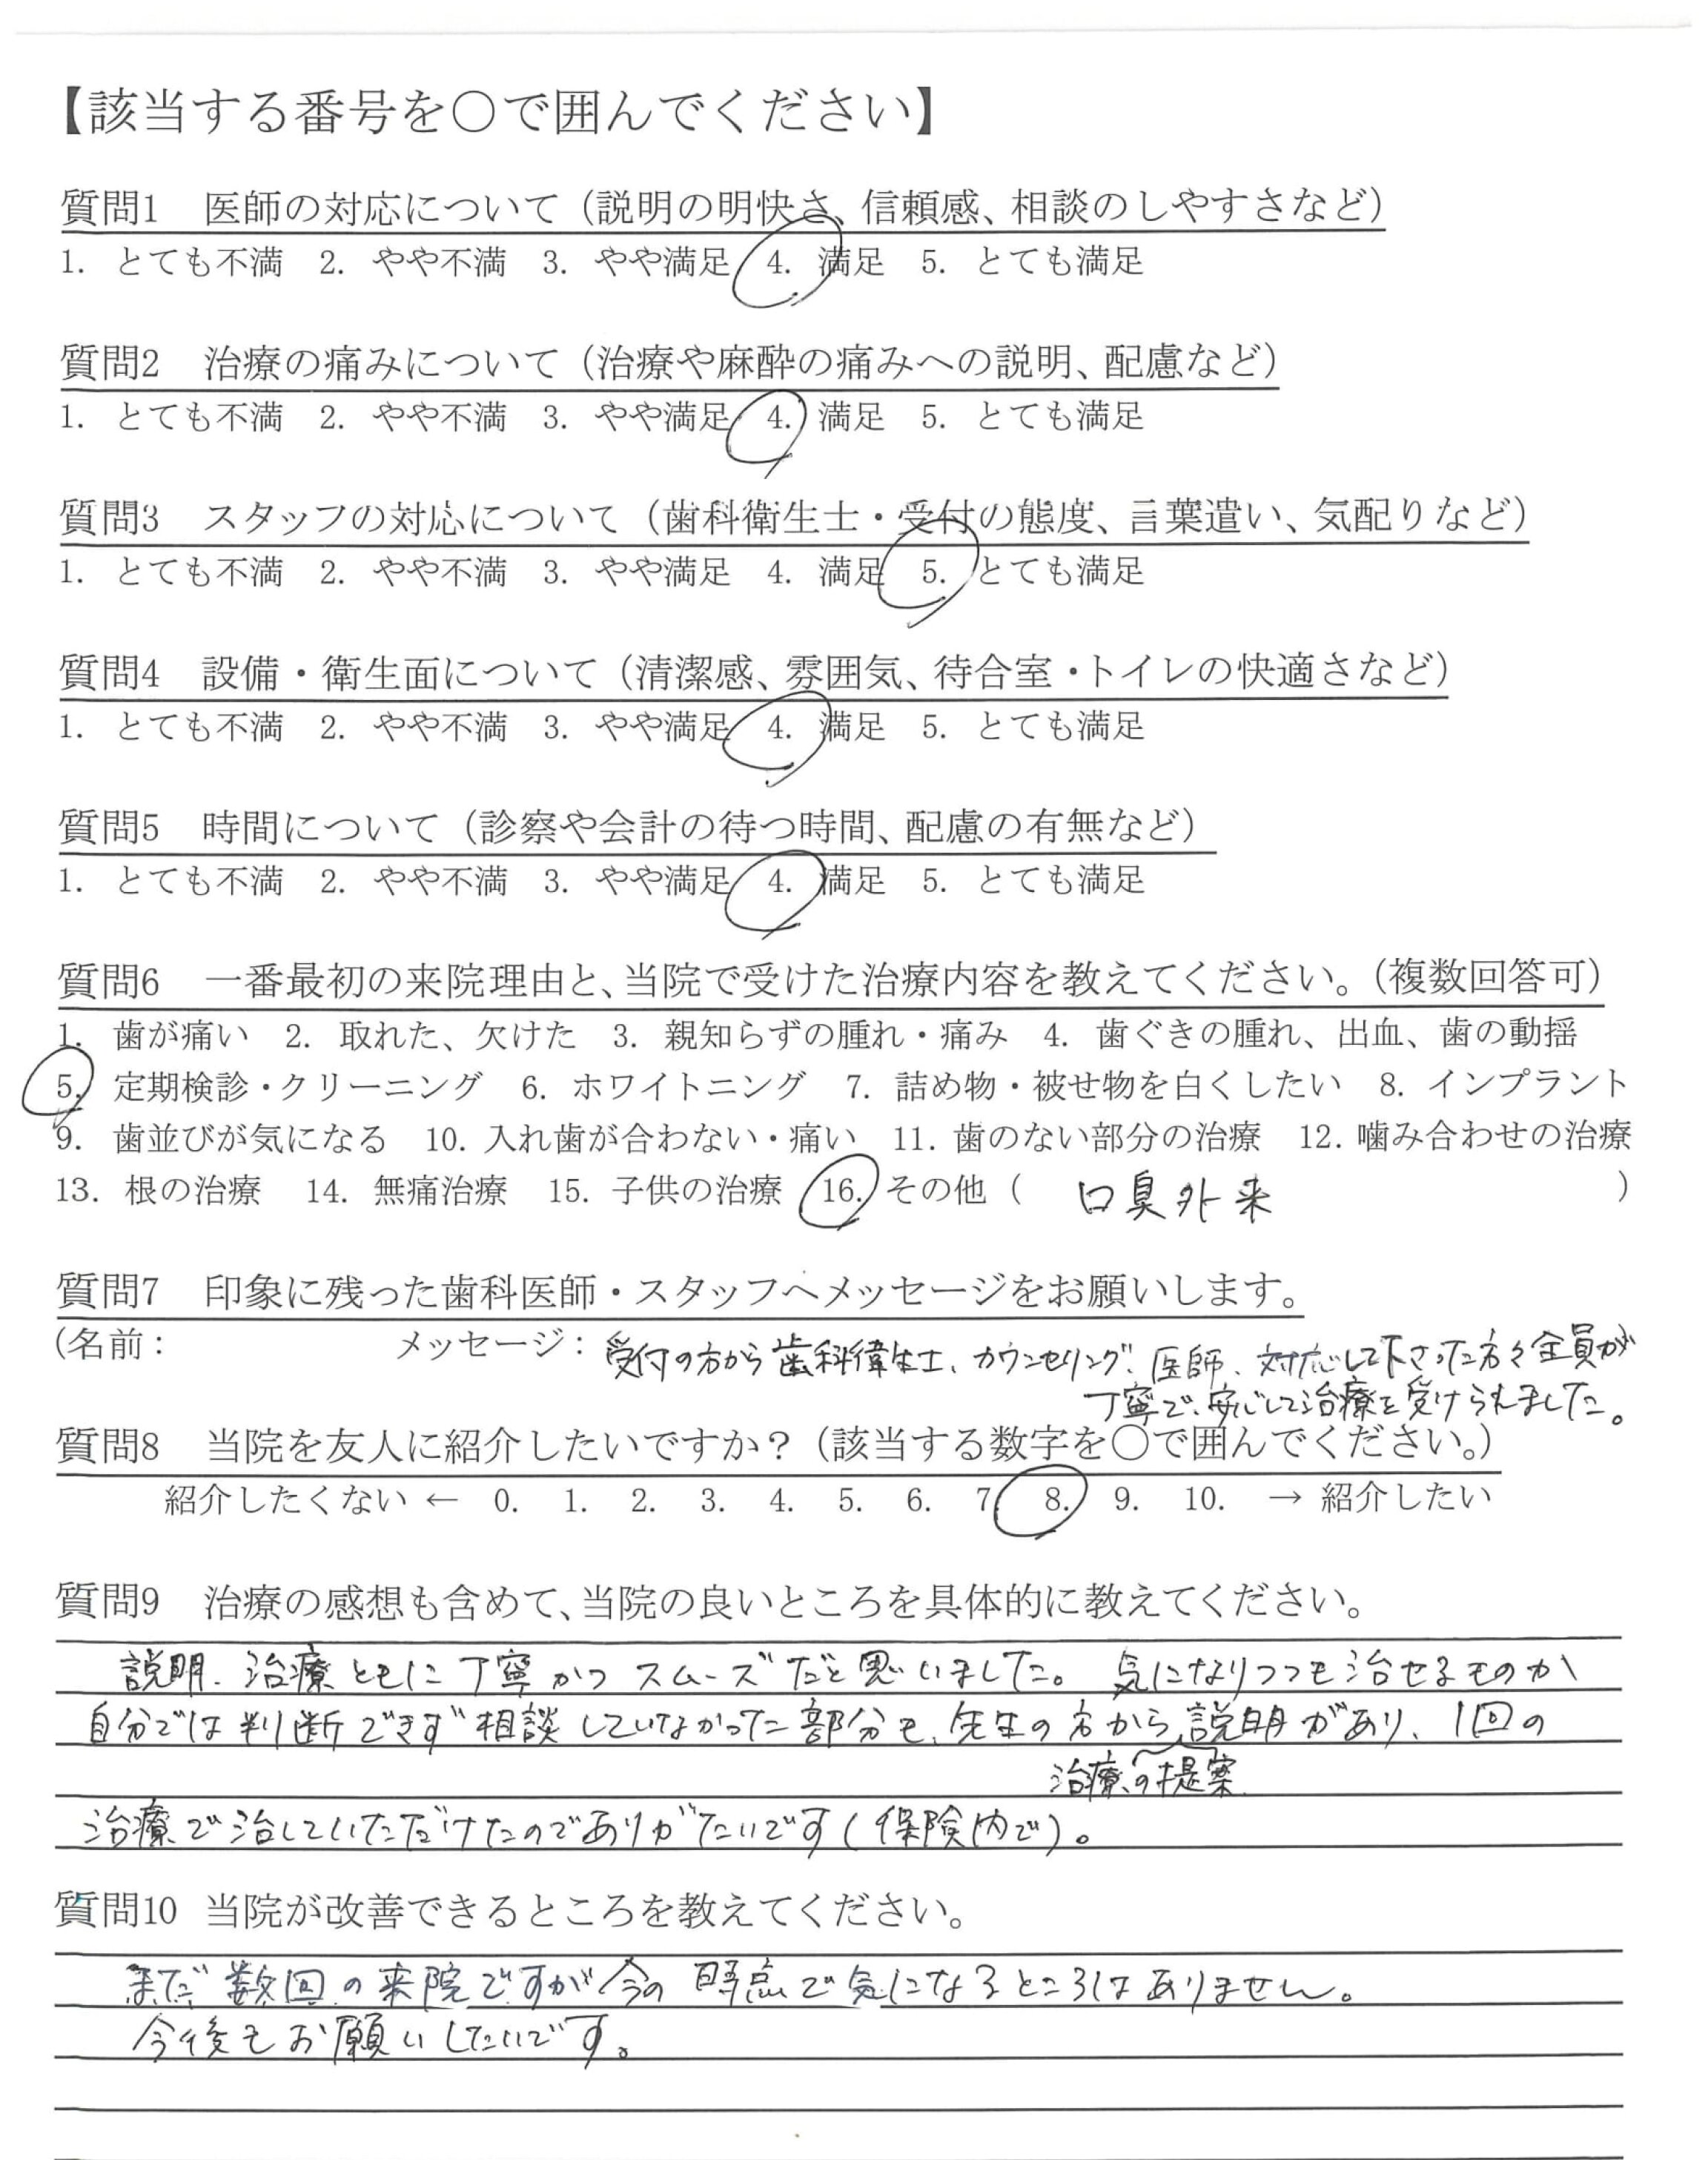 【該当する番号を〇で囲んでください】
質問1　医師の対応について（説明の明快さ、信頼感、相談のしやすさなど）
1. とても不満　2. やや不満　3. やや満足　4. 満足　5. とても満足
質問2　治療の痛みについて（治療や麻酔の痛みへの説明、配慮など）
1. とても不満　2. やや不満　3. やや満足　4. 満足　5. とても満足
質問3　スタッフの対応について（歯科衛生士・受付の態度、言葉遣い、気配りなど）
1. とても不満　2. やや不満　3. やや満足　4. 満足　5. とても満足
質問4　設備・衛生面について（清潔感、雰囲気、待合室・トイレの快適さなど）
1. とても不満　2. やや不満　3. やや満足　4. 満足　5. とても満足
質問5　時間について（診察や会計の待つ時間、配慮の有無など）
1. とても不満　2. やや不満　3. やや満足　4. 満足　5. とても満足
質問6　一番最初の来院理由と、当院で受けた治療内容を教えてください。（複数回答可）
1. 歯が痛い　2. 取れた、欠けた　3. 親知らずの腫れ・痛み　4. 歯ぐきの腫れ、出血、歯の動揺
5. 定期検診・クリーニング　6. ホワイトニング　7. 詰め物・被せ物を白くしたい　8. インプラント
9. 歯並びが気になる　10. 入れ歯が合わない・痛い　11. 歯のない部分の治療　12. 噛み合わせの治療
13. 根の治療　14. 無痛治療　15. 子供の治療　16. その他（　口臭外来　）
質問7　印象に残った歯科医師・スタッフへメッセージをお願いします。
（名前：　メッセージ：受付の方から歯科衛生士、カウンセリング、医師、対応して下さった方々全員が
丁寧で、安心して治療を受けられました。
質問8　当院を友人に紹介したいですか？（該当する数字を〇で囲んでください。）
紹介したくない ← 0. 1. 2. 3. 4. 5. 6. 7. 8. 9. 10. → 紹介したい
質問9　治療の感想も含めて、当院の良いところを具体的に教えてください。
説明、治療ともに丁寧かつスムーズだと思いました。気になりつつも治せるものか
自分では判断できず相談していなかった部分も、先生の方から説明があり、1回の
治療の提案
治療で治していただけたのでありがたいです（保険内で）。
質問10　当院が改善できるところを教えてください。
まだ数回の来院ですが今の時点で気になるところはありません。
今後もお願いしたいです。